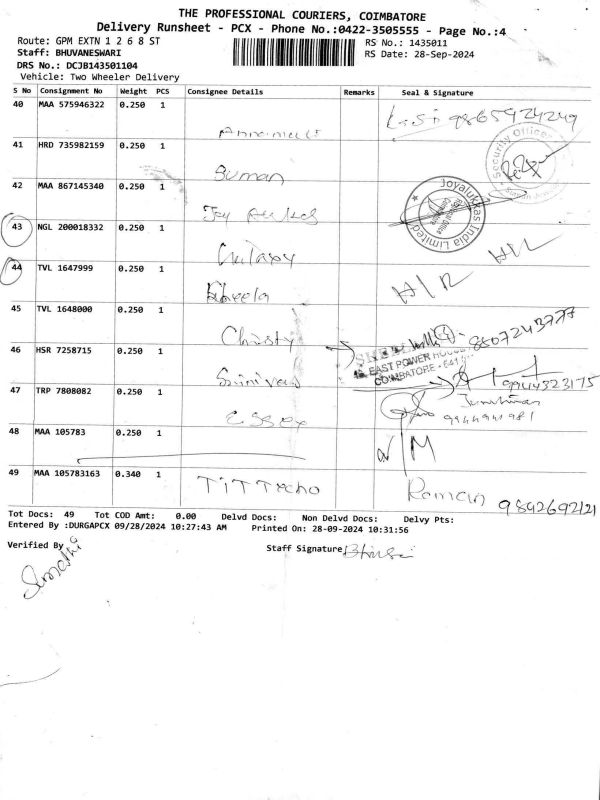 THE PROFESSIONAL COURIERS, COIMBATORE
Delivery Runsheet - PCX - Phone No.:0422-3505555 - Page No.:4
Route: GPM EXTN 1 2 6 8 ST
RS No.: 1435011
Staff: BHUVANESWARI
RS Date: 28-Sep-2024
DRS No.: DCJB143501104
Vehicle: Two Wheeler Delivery
S No Consignment No Weight PCS Consignee Details Remarks Seal & Signature
40 MAA 575946322 0.250 1 9865924249
41 HRD 735982159 0.250 1 Suman Security Office
42 MAA 867145340 0.250 1 Joy Joyalukkas India Limited
43 NGL 200018332 0.250 1
44 TVL 1647999 0.250 1 Sheela H/R
45 TVL 1648000 0.250 1 Christy 8807243777
EAST POWER HOUSE
COIMBATORE - 641
46 HSR 7258715 0.250 1 Srinivas 9944323175
47 TRP 7808082 0.250 1 Essex 9944941981
48 MAA 105783 0.250 1 N/M
49 MAA 105783163 0.340 1 TIT Techo Raman 9842692121
Tot Docs: 49 Tot COD Amt: 0.00 Delvd Docs: Non Delvd Docs: Delvy Pts:
Entered By :DURGAPCX 09/28/2024 10:27:43 AM Printed On: 28-09-2024 10:31:56
Verified By
Staff Signature